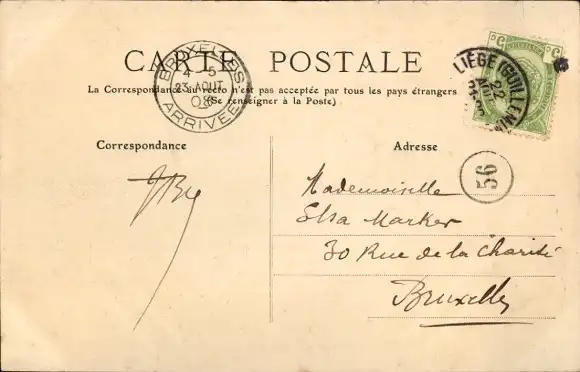 CARTE POSTALE
BRUXELLES
4-5
23 AOUT
08
ARRIVÉE
LIÉGE (GUILLEMI
22
La Correspondance au recto n'est pas acceptée par tous les pays étrangers
(Se renseigner à la Poste)
Correspondance
Adresse
56
Mademoiselle
Elsa Marker
30 Rue de la Charité
Bruxelles